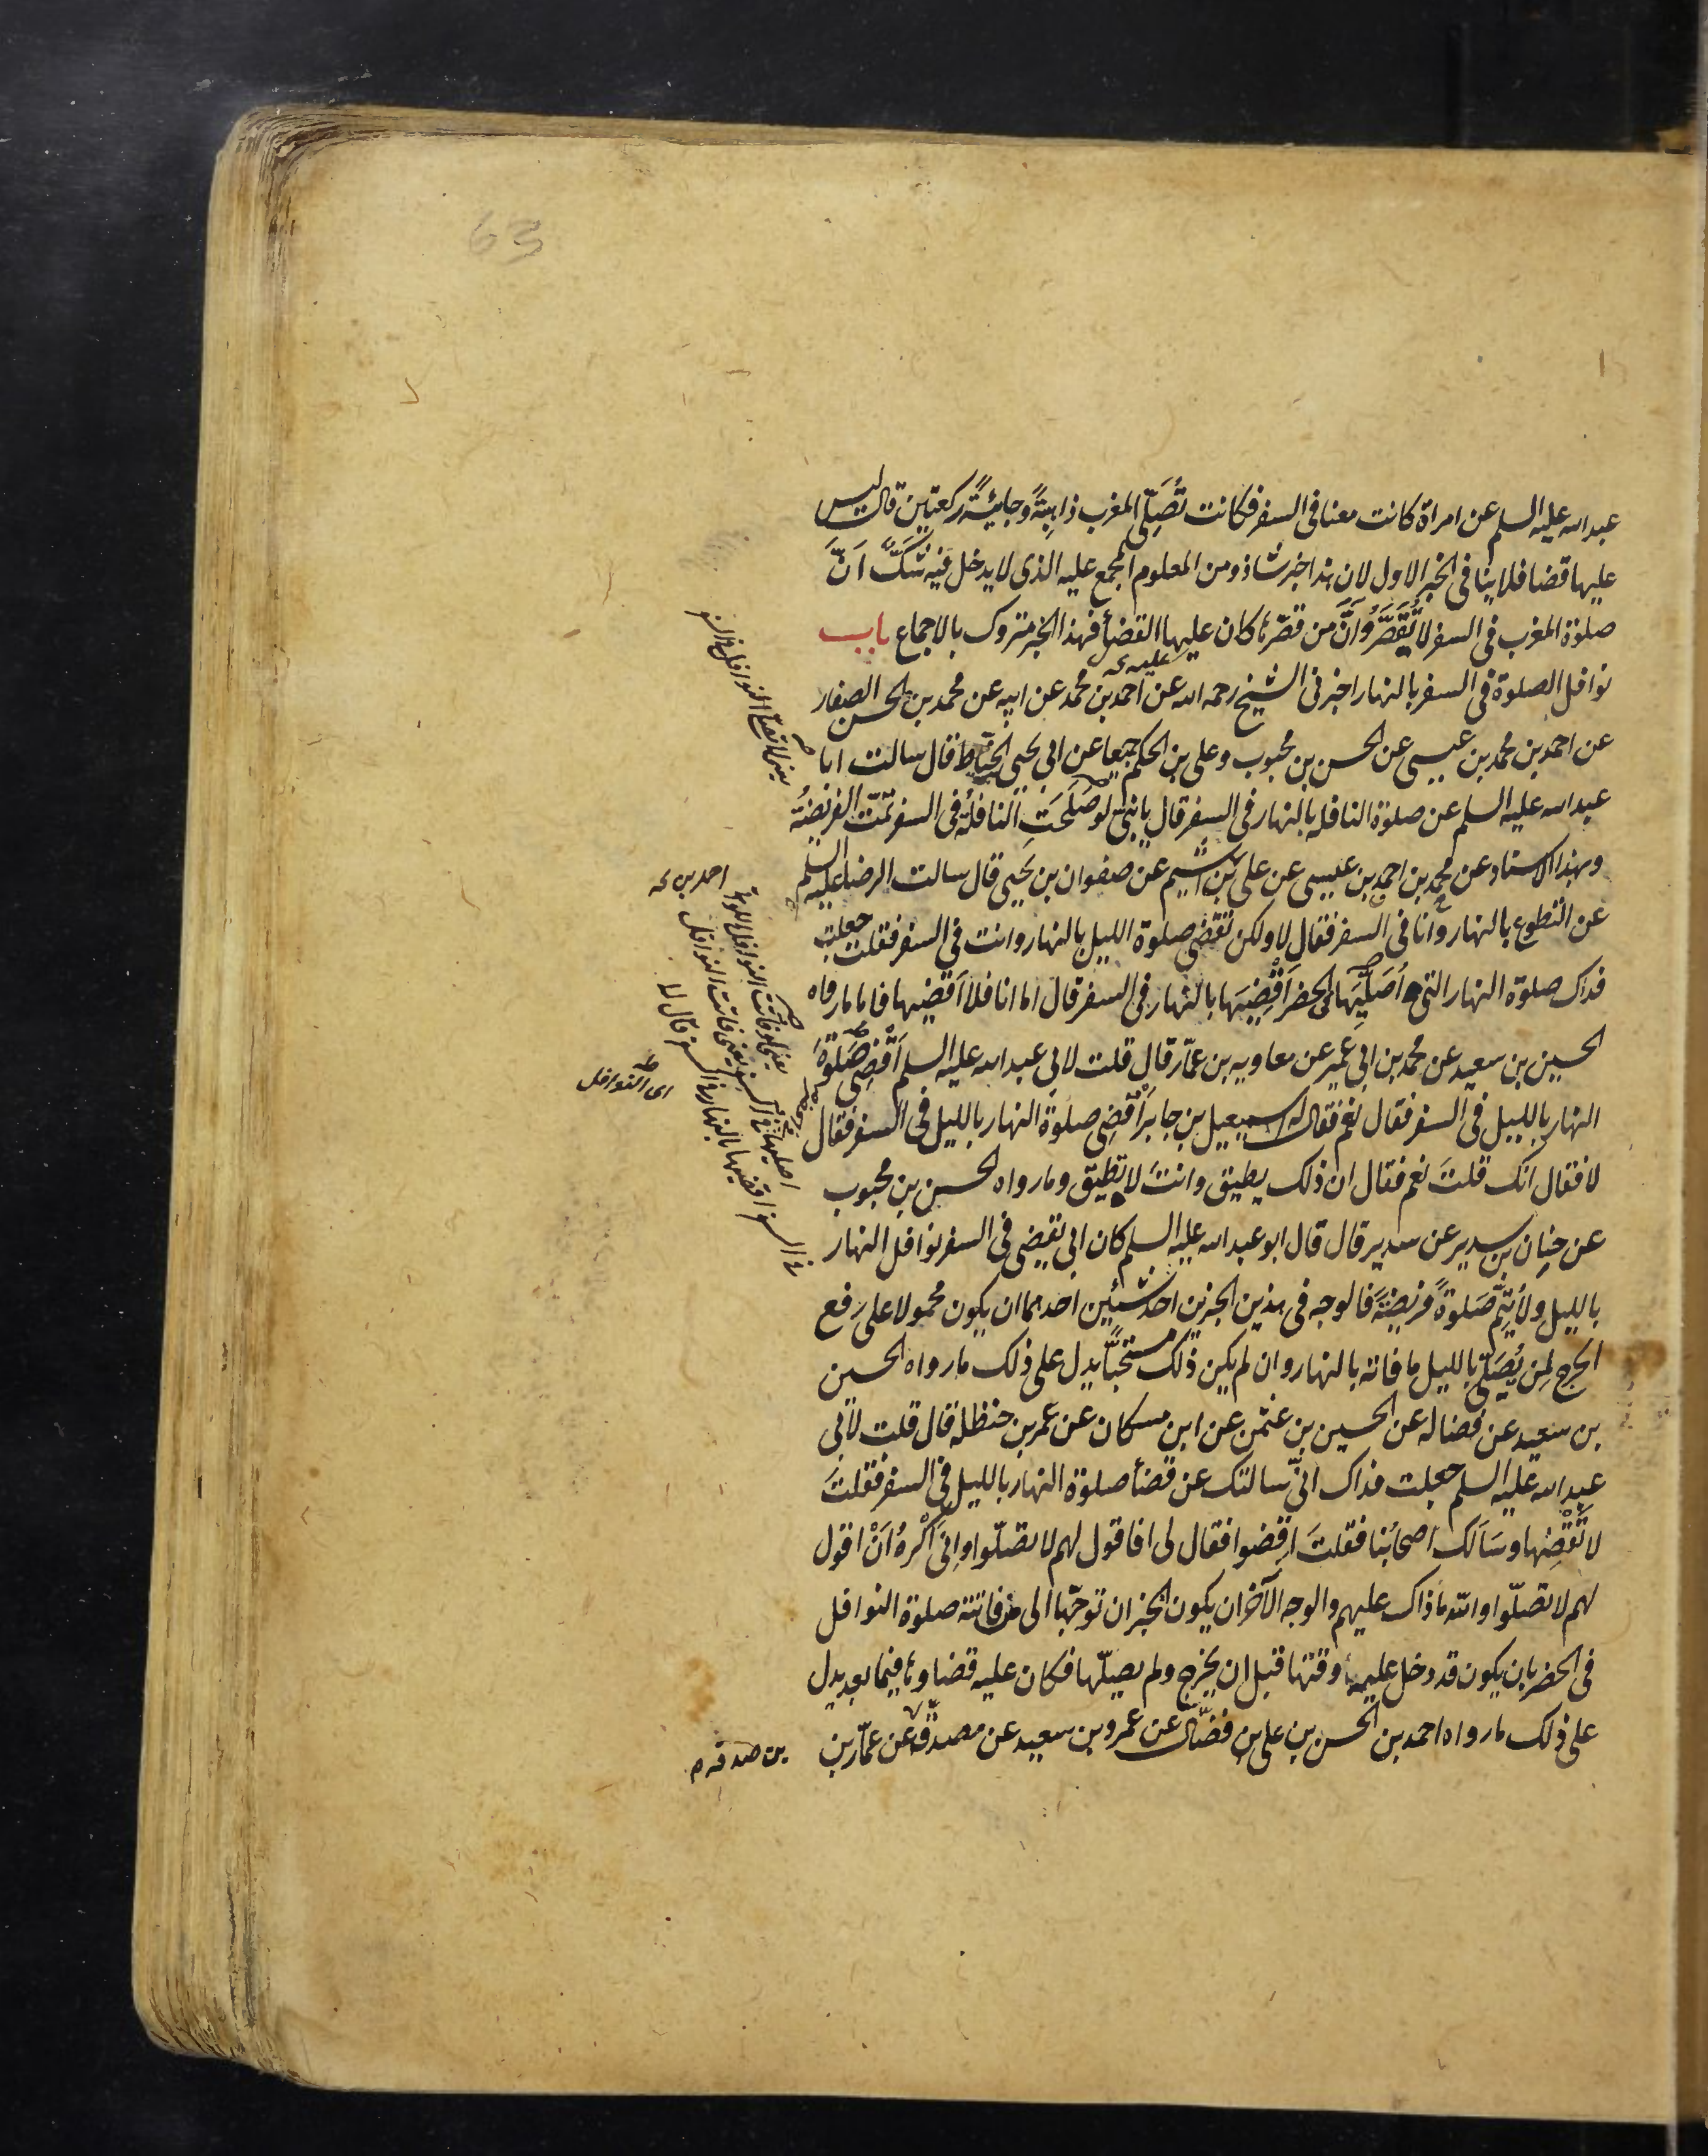 63
عبد الله عليه السلم عن امراة كانت معنا فى السفر فكانت تُصَلّى المغرب ذاهبةً وجائيةً ركعتين قال ليس
عليها قضا فلا ينافى الخبر الاول لان هذا خبر شاذ ومن المعلوم المجمع عليه الذى لا يدخل فيه شَكٌّ اَنّ
صلوة المغرب فى السفر لا تُقَصَّرُ وَاَنَّ من قصّرها كان عليها القضأ فهذا الخبر متروك بالاجماع باب
عليه
نوافل الصلوة فى السفر بالنهار اخبرنى الشيخ رحمه الله عن احمد بن محمد عن ابيه عن محمد بن الحسن الصفار
عن احمد بن محمد بن عيسى عن الحسن بن محبوب وعلى بن الحكم جميعا عن ابى يحيى الحناط قال سالت ابا
عبد الله عليه السلم عن صلوة النافله بالنهار فى السفر قال يا بنىّ لو صَلَحَتِ النافلةُ فى السفر تمّت الفريضةُ
وبهذا الاسناد عن محمد بن احمد بن عيسى عن على بن اشيم عن صفوان بن يحيى قال سالت الرضا عليه السلم
عن التطوع بالنهار وانا فى السفر فقال لا ولكن تقضى صلوة الليل بالنهار وانت فى السفر فقلت جعلت
فداك صلوة النهار التى اُصَلّيها فى الحضر اَقْضِيَها بالنهار فى السفر قال اما انا فلا اَقضيها فاما ما رواه
الحسين بن سعيد عن محمد بن ابى عمير عن معاويه بن عمّار قال قلت لابى عبد الله عليه السلم اَقْضِى صَلوةَ
النهار بالليل فى السفر فقال نعم فقال له اسمعيل بن جابر اَقْضِى صلوة النهار بالليل فى السفر فقال
لا فقال انك قلتَ نعم فقال ان ذلك يطيق وانتَ لا تطيق وما رواه الحسن بن محبوب
عن حنان بن سدير عن سدير قال قال ابو عبد الله عليه السلم كان ابى يقضى فى السفر نوافل النهار
بالليل ولا يُتِمّ صَلوةً فريضةً فالوجه فى هذين الخبرين احد شيئين احدهما ان يكون محمولا على رفع
الحرج لمن يُصَلّى بالليل ما فاته بالنهار وان لم يكن ذلك مستحبًّا يدل على ذلك ما رواه الحسين
بن سعيد عن فضاله عن الحسين بن عثمن عن ابن مسكان عن عمر بن حنظله قال قلت لابى
عبد الله عليه السلم جعلت فداك انّى سالتك عن قضأ صلوة النهار بالليل فى السفر فقلتَ
لا تَقْضِها وسَاَلك اصحابُنا فقلتَ اِقضوا فقال لى افاقول لهم لا تصلّوا وانّى اَكْرهُ اَنْ اقول
لهم لا تصلّوا والله ما ذاك عليهم والوجه الآخر ان يكون الخبران توجّها الى من فاتته صلوة النوافل
فى الحضر بان يكون قد دخل عليه وقتها قبل ان يخرج ولم يصلّها فكان عليه قضاوها فيما بعد يدل
على ذلك ما رواه احمد بن الحسن بن على بن فضّال عن عمرو بن سعيد عن مصدّق عن عمّار بن
احمد بن
اى النوافل
بن صدقه